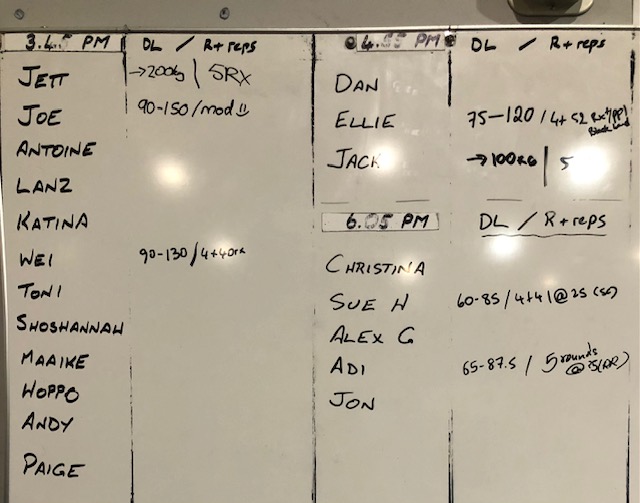 3.45 PM DL / R+reps
JETT →200kg | 5RX
JOE 90-150/mod
ANTOINE
LANZ
KATINA
WEI 90-130/4+40rx
TONI
SHOSHANNAH
MAAIKE
HOPPO
ANDY
PAIGE
4.55 PM DL / R+reps
DAN
ELLIE 75-120/4+52 Rx
JACK →100kg | 5
6.05 PM DL / R+reps
CHRISTINA
SUE H 60-85/4+41@25
ALEX G
ADI 65-87.5 / 5 rounds
@25(RR)
JON